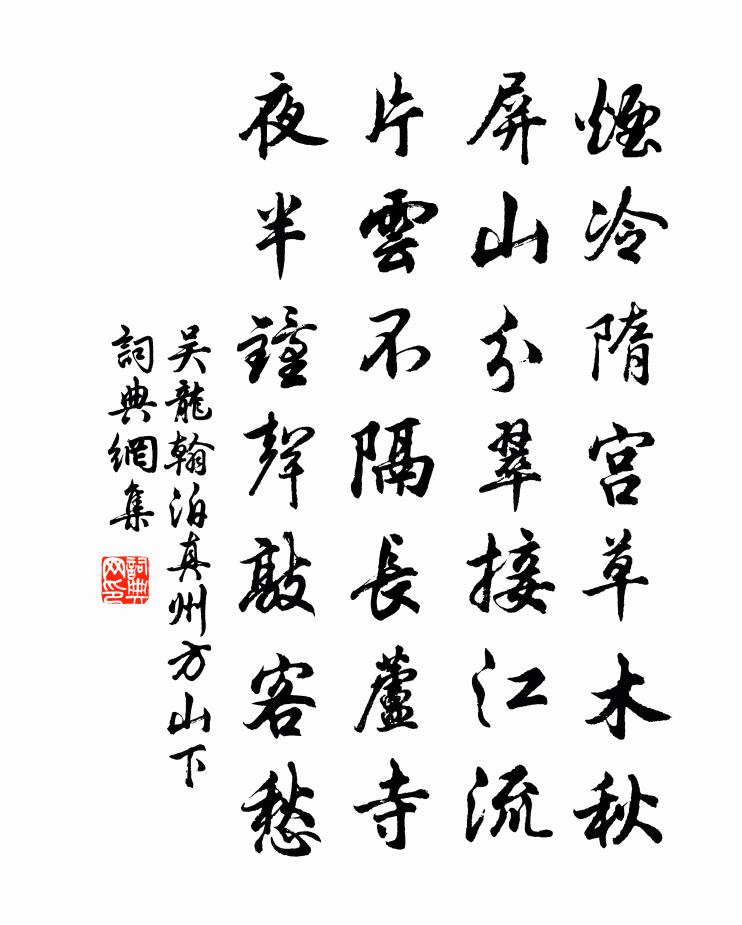 煙冷隋宮草木秋
屏山分翠接江流
片雲不隔長蘆寺
夜半鐘聲敲客愁
吴龍翰泊真州方山下
詞典網集
詞典网印